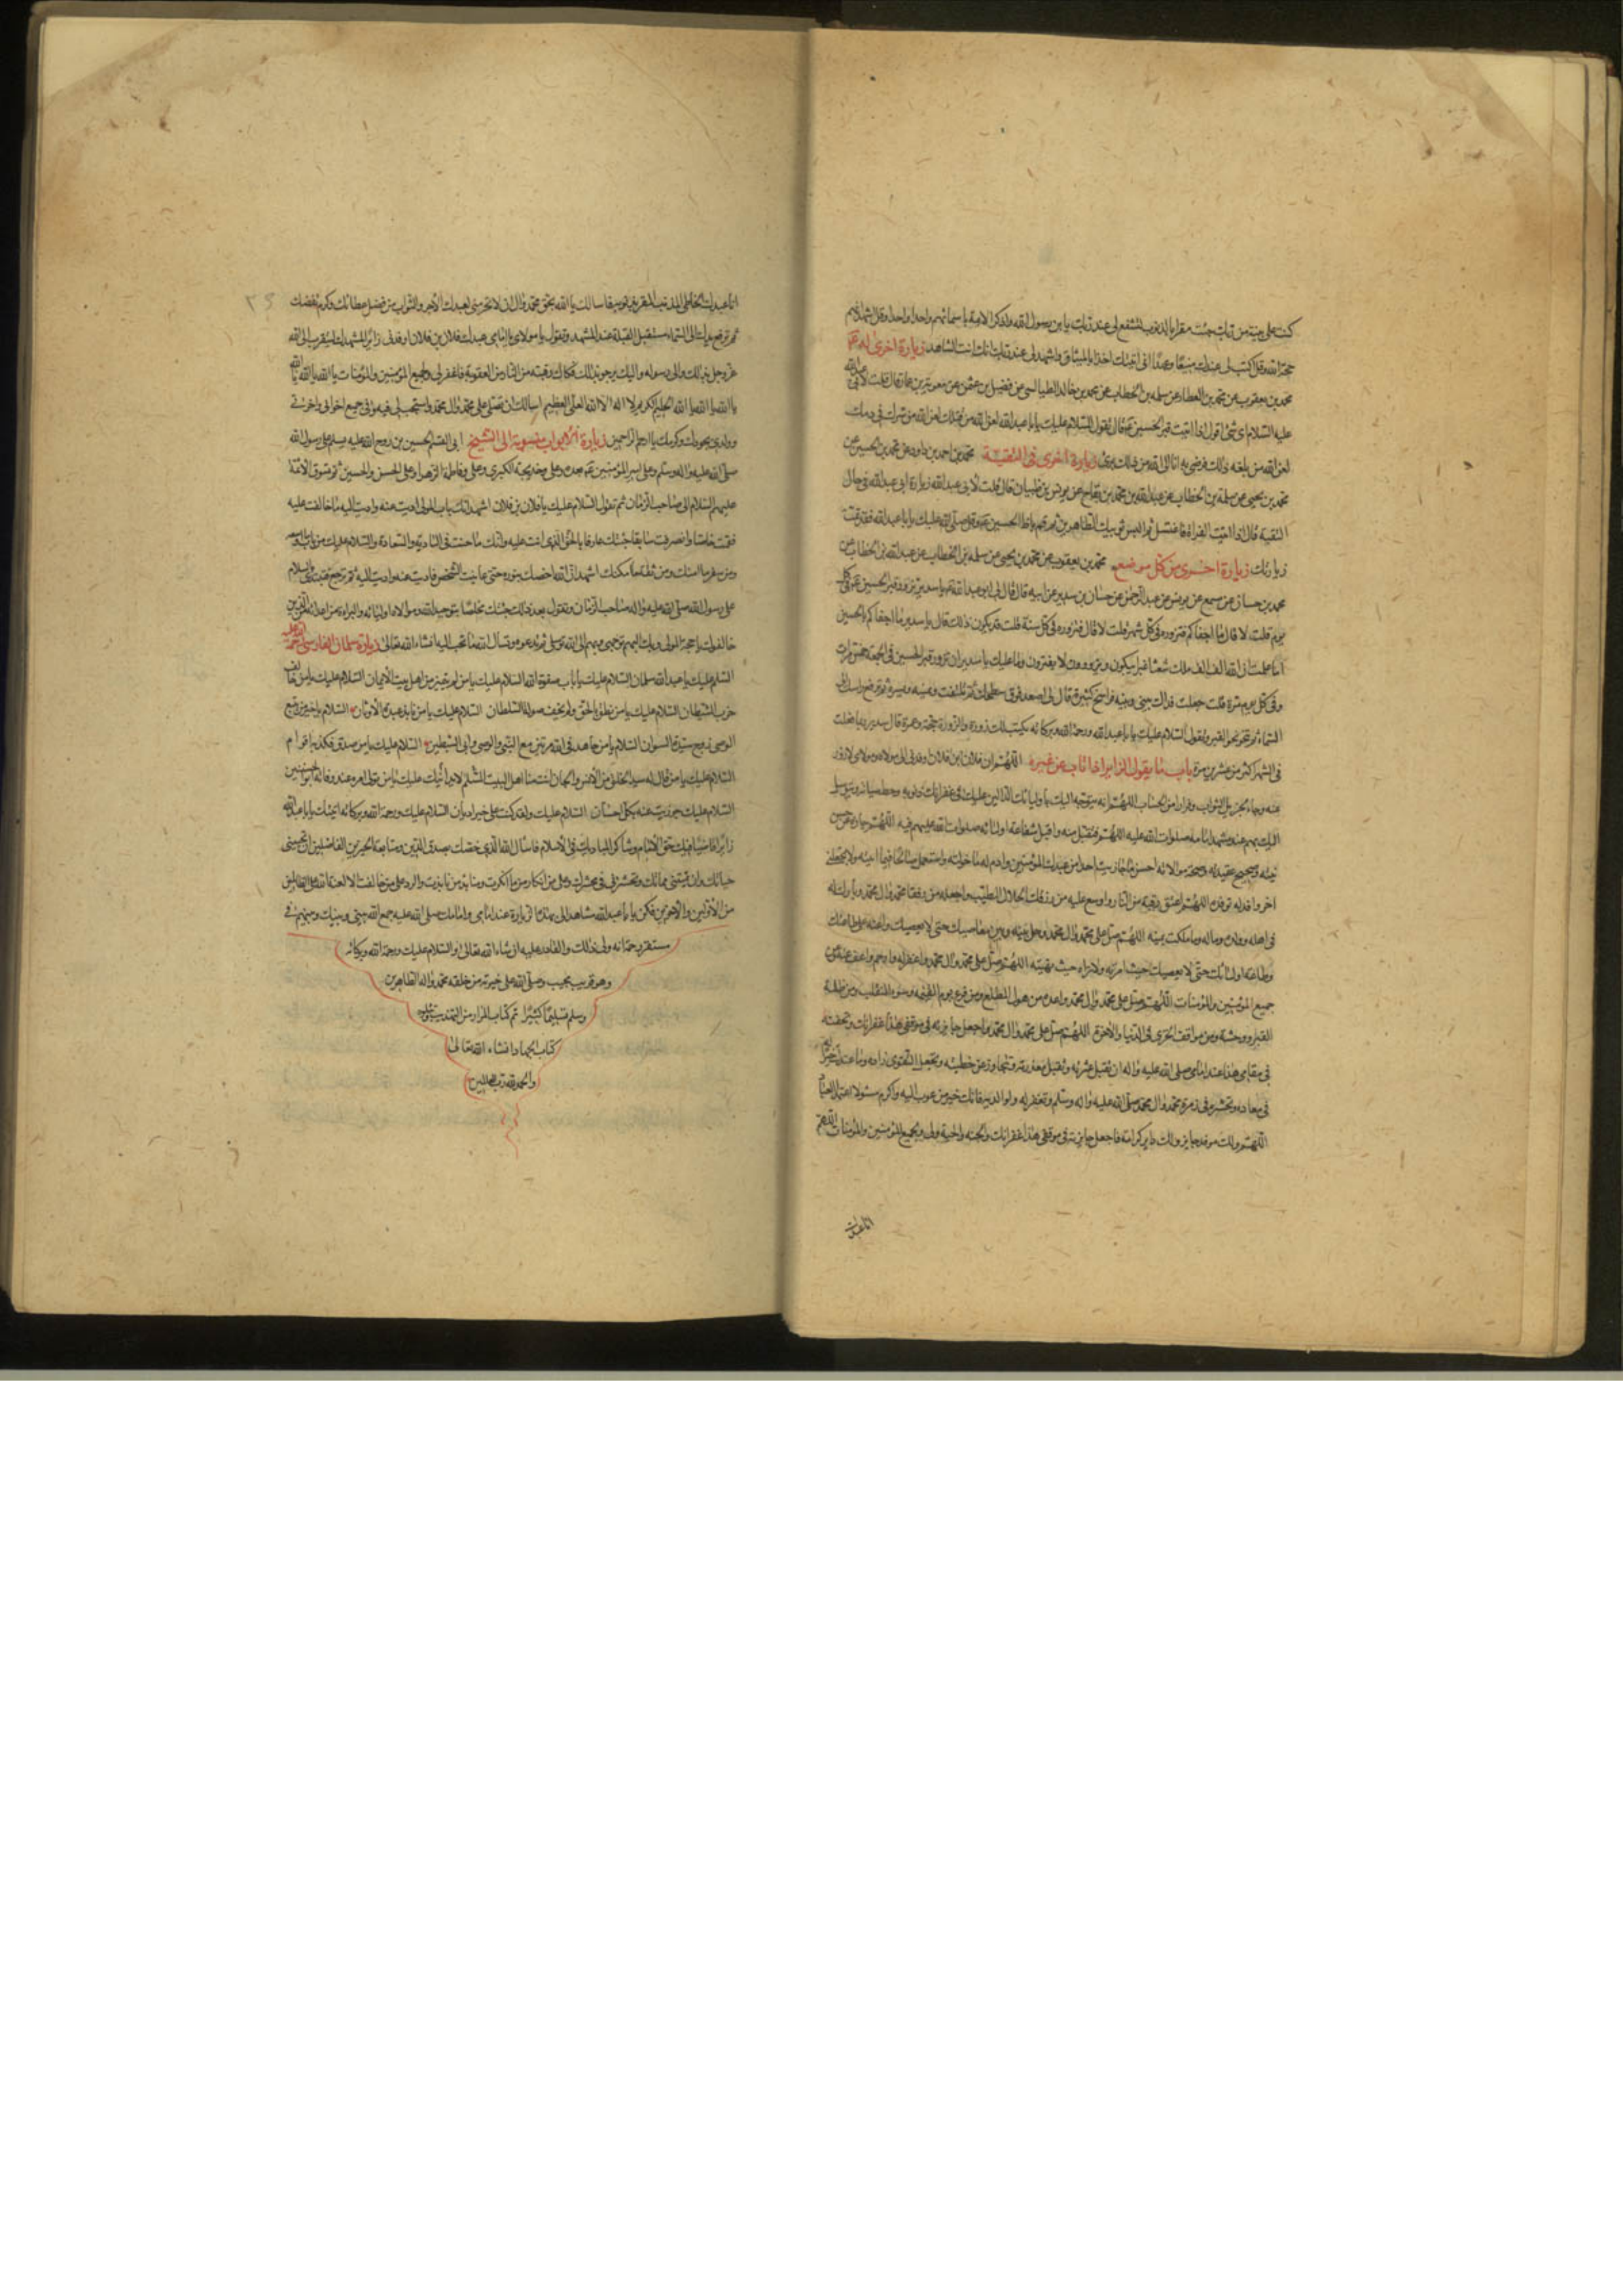 كنت على بينة من ربك جئت مقرا بالذنوب لتشفع لى عند ربك يابن رسول الله واذكر الائمة باسمائهم واحدا واحدا وقل اشهد انكم
حجة الله وقل اكتب لى عندك ميثاقا وعهدا انى اتيتك اجدد الميثاق واشهد لى عند ربك انك انت الشاهد زيارة اخرى له
محمد بن يعقوب عن محمد بن العطار عن سلمة بن الخطاب عن محمد بن خالد الطيالسى عن فضيل بن عثمن عن معوية بن عمار قال قلت لابى عبدالله
عليه السلام اى شئ اقول اذا اتيت قبر الحسين قال تقول السلام عليك يا با عبد الله لعن الله من قتلك لعن الله من شرك فى دمك
لعن الله من بلغه ذلك فرضى به انا الى الله من ذلك برئ زيارة اخرى فى التقية محمد بن احمد بن داود عن محمد بن الحسين عن
محمد بن يحيى عن سلمة بن الخطاب عن عبد الله بن محمد بن عن يونس بن ظبيان قال قلت لابى عبد الله زيارة ابى عبد الله فى حال
التقية قال اذا اتيت الفراة فاغتسل ثم البس ثوبيك الطاهرين ثم بازاء الحسين وقل صلى الله عليك يا با عبد الله فقد تمت
زيارتك زيارة اخرى من كل موضع محمد بن يعقوب عن محمد بن يحيى عن سلمة بن الخطاب عن عبد الله بن الخطاب عن
محمد بن حسان عن مسمع عن يونس عن عبد الرحمن عن حنان بن سدير عن ابيه قال قال لى ابو عبد الله يا سدير تزور قبر الحسين فى كل
يوم قلت لا قال ما اجفاكم فتزوره فى كل شهر قلت لا قال فتزوره فى كل سنة قلت قد يكون ذلك قال يا سدير ما اجفاكم بالحسين
اما علمت ان لله الف الف ملك شعثا غبرا يبكون ويزورون لا يفترون وما عليك يا سدير ان تزور قبر الحسين فى الجمعة خمس مرات
وفى كل يوم مرة قلت جعلت فداك بينى وبينه فراسخ كثيرة قال لى اصعد فوق سطحك ثم تلتفت ويمنة ويسرة ثم ترفع راسك الى
السماء ثم تنحو نحو القبر وتقول السلام عليك يا با عبد الله ورحمة الله وبركاته يكتب لك زورة والزورة حجة وعمرة قال سدير ربما فعلت
فى الشهر اكثر من عشرين مرة باب ما يقول الزائر اذا ناب عن غيره اللهم ان فلان ابن فلان اوفدنى الى مولاه ومولاى لازور
عنه رجاء لجزيل الثواب وفرارا من الحساب اللهم انه يتوجه اليك باوليائك الدالين عليك فى غفرانك ذنوبه وحط سيئاته ويتوسل
اليك بهم عند مشهد امامه صلوات الله عليه اللهم فتقبل منه واقبل شفاعة اوليائه صلوات الله عليهم فيه اللهم جازه على حسن
نيته وصحيح عقيدته وصحة موالاته احسن ما جازيت احدا من عبيدك المؤمنين وادم له ما خولته واستعمله صالحا فيما اتيته ولا تجعلنى
اخر وافد له يوفده اللهم اعتق رقبته من النار واوسع عليه من رزقك الحلال الطيب واجعله من رفقاء محمد وال محمد وبارك له
فى اهله وولده وماله وما ملكت يمينه اللهم صل على محمد وال محمد وحل بينه وبين معاصيك حتى لا يعصيك واعنه على طاعتك
وطاعة اوليائك حتى لا حيث امرته ولا تراه حيث نهيته اللهم صل على محمد وال محمد واغفر له وارحمه واعف عنه وعن
جميع المؤمنين والمؤمنات اللهم صل على محمد وال محمد واعذه من هول المطلع ومن فزع يوم القيمة وسوء المنقلب ومن ظلمة
القبر ووحشته ومن مواقف الخزى فى الدنيا والاخرة اللهم صل على محمد وال محمد واجعل جايزته فى موقفى هذا غفرانك وتحفته
فى مقامى هذا عند امامى صلى الله عليه واله ان تقيل عثرته وتقبل معذرته وتتجاوز عن خطيئته وتجعل التقوى زاده وما عندك خيرا له
فى معاده وتحشره فى زمرة محمد وال محمد صلى الله عليه واله وسلم وتغفر له ولوالديه فانك خير مرغوب اليه واكرم مسئول اعتمد العباد
اللهم ولكل موفد جايزة ولكل زاير كرامة فاجعل جايزته فى موقفى هذا غفرانك والجنة له ولى ولجميع المؤمنين والمؤمنات اللهم
انا عبدك
انا عبدك الخاطى المذنب المقر بذنوبه فاسالك يا الله بحق محمد وال ان لا تحرمنى بعبدك الاجر والثواب من فضل عطائك وكرم تفضلك
ثم ترفع يديك الى السماء مستقبل القبلة عند المشهد وتقول يا مولاى يا امامى عبدك فلان بن فلان اوفدنى زائرا لمشهدك يتقرب الى الله
عز وجل بذلك والى رسوله واليك يرجو بذلك فكاك رقبته من النار من العقوبة فاغفر له ولجميع المؤمنين والمؤمنات يا الله يا الله يا الله
يا الله يا الله يا الله الحليم الكريم لا اله الا الله العلى العظيم اسالك ان تصلى على محمد وال محمد واستجب لى فيه وفى جميع اخوانى واخواتى
وولدى بجودك وكرمك يا ارحم الراحمين زيارة الابواب منسوبة الى الشيخ ابى القسم الحسين بن روح الله عليه يسلم على رسول الله
صلى الله عليه واله وسلم وعلى امير المؤمنين بعده وعلى خديجة الكبرى وعلى فاطمة الزهراء وعلى الحسن والحسين ثم تسوق الائمة
عليهم السلام الى صاحب الزمان ثم تقول السلام عليك يا فلان بن فلان اشهد انك باب المولى اديت عنه واديت اليه ما خالفت عليه
فقمت خاصا وانصرفت سابقا جئتك عارفا بالحق الذى انت عليه وانك ما خنت فى التادية والسفارة والسلام عليك من باب ما اوسعه
ومن سفير ما امنك ومن ثقة ما امكنك اشهد ان الله اختصك بنوره حتى عاينت الشخص فاديت عنه واديت اليه ثم ترجع فتبتدى بالسلام
على رسول الله صلى الله عليه واله صاحب الزمان وتقول بعد ذلك جئتك مخلصا بتوحيد الله وموالاة اوليائه والبراءة من اعدائه الذين
خالفوك يا حجة المولى وبك اليهم توجهى وبهم الى الله توسلى ثم تدعو وتسال الله ما تحب اليه انشاء الله تعالى زيارة سلمان الفارسى
السلام عليك يا عبد الله سلمان السلام عليك يا باب صفوة الله السلام عليك يا من لم يتميز من اهل بيت الايمان السلام عليك يا من خالف
حزب الشيطان السلام عليك يا من نطق بالحق ولم يخف صولة السلطان السلام عليك يا من نابذ عبدة الاوثان السلام يا خير من تبع
الوصى زوج سيدة النسوان السلام يا من جاهد فى الله مرتين مع النبى والوصى وابى السبطين السلام عليك يا من صدق فكذبه اقوام
السلام عليك يا من قال له سيد الخلق من الانس والجان انت منا اهل البيت السلام عليك يا من تولى امره عند وفاته ابو الحسنين
السلام عليك جوزيت عنه بكل احسان السلام عليك ولقد كنت على خير اديان السلام عليك ورحمة الله وبركاته اتيتك يا با عبد الله
زائرا قاضيا فيك حق الامام وشاكرا لبلائك فى الاسلام فاسال الله الذى خصك بصدق الدين ومتابعة الخيرين الفاضلين ان يحيينى
حياتك وان يميتنى مماتك ويحشرنى محشرك وعلى انكار من ما انكرت ومنابذة من نابذت والرد على من خالفت الا لعنة الله على الظالمين
من الاولين والاخرين فكن يا با عبد الله شاهدا لى بهذه الزيارة عند امامى وامامك صلى الله عليه جمع الله بينى وبينك وبينهم فى
مستقر رحمته انه ولى ذلك والقادر عليه ان شاء الله تعالى والسلام عليك ورحمة الله وبركاته
وهو قريب مجيب وصلى الله على خيرته من خلقه محمد واله الطاهرين
وسلم تسليما كثيرا تم كتاب المزار من التهذيب يتلوه
كتاب الجهاد انشاء الله تعالى
والحمد لله رب العالمين